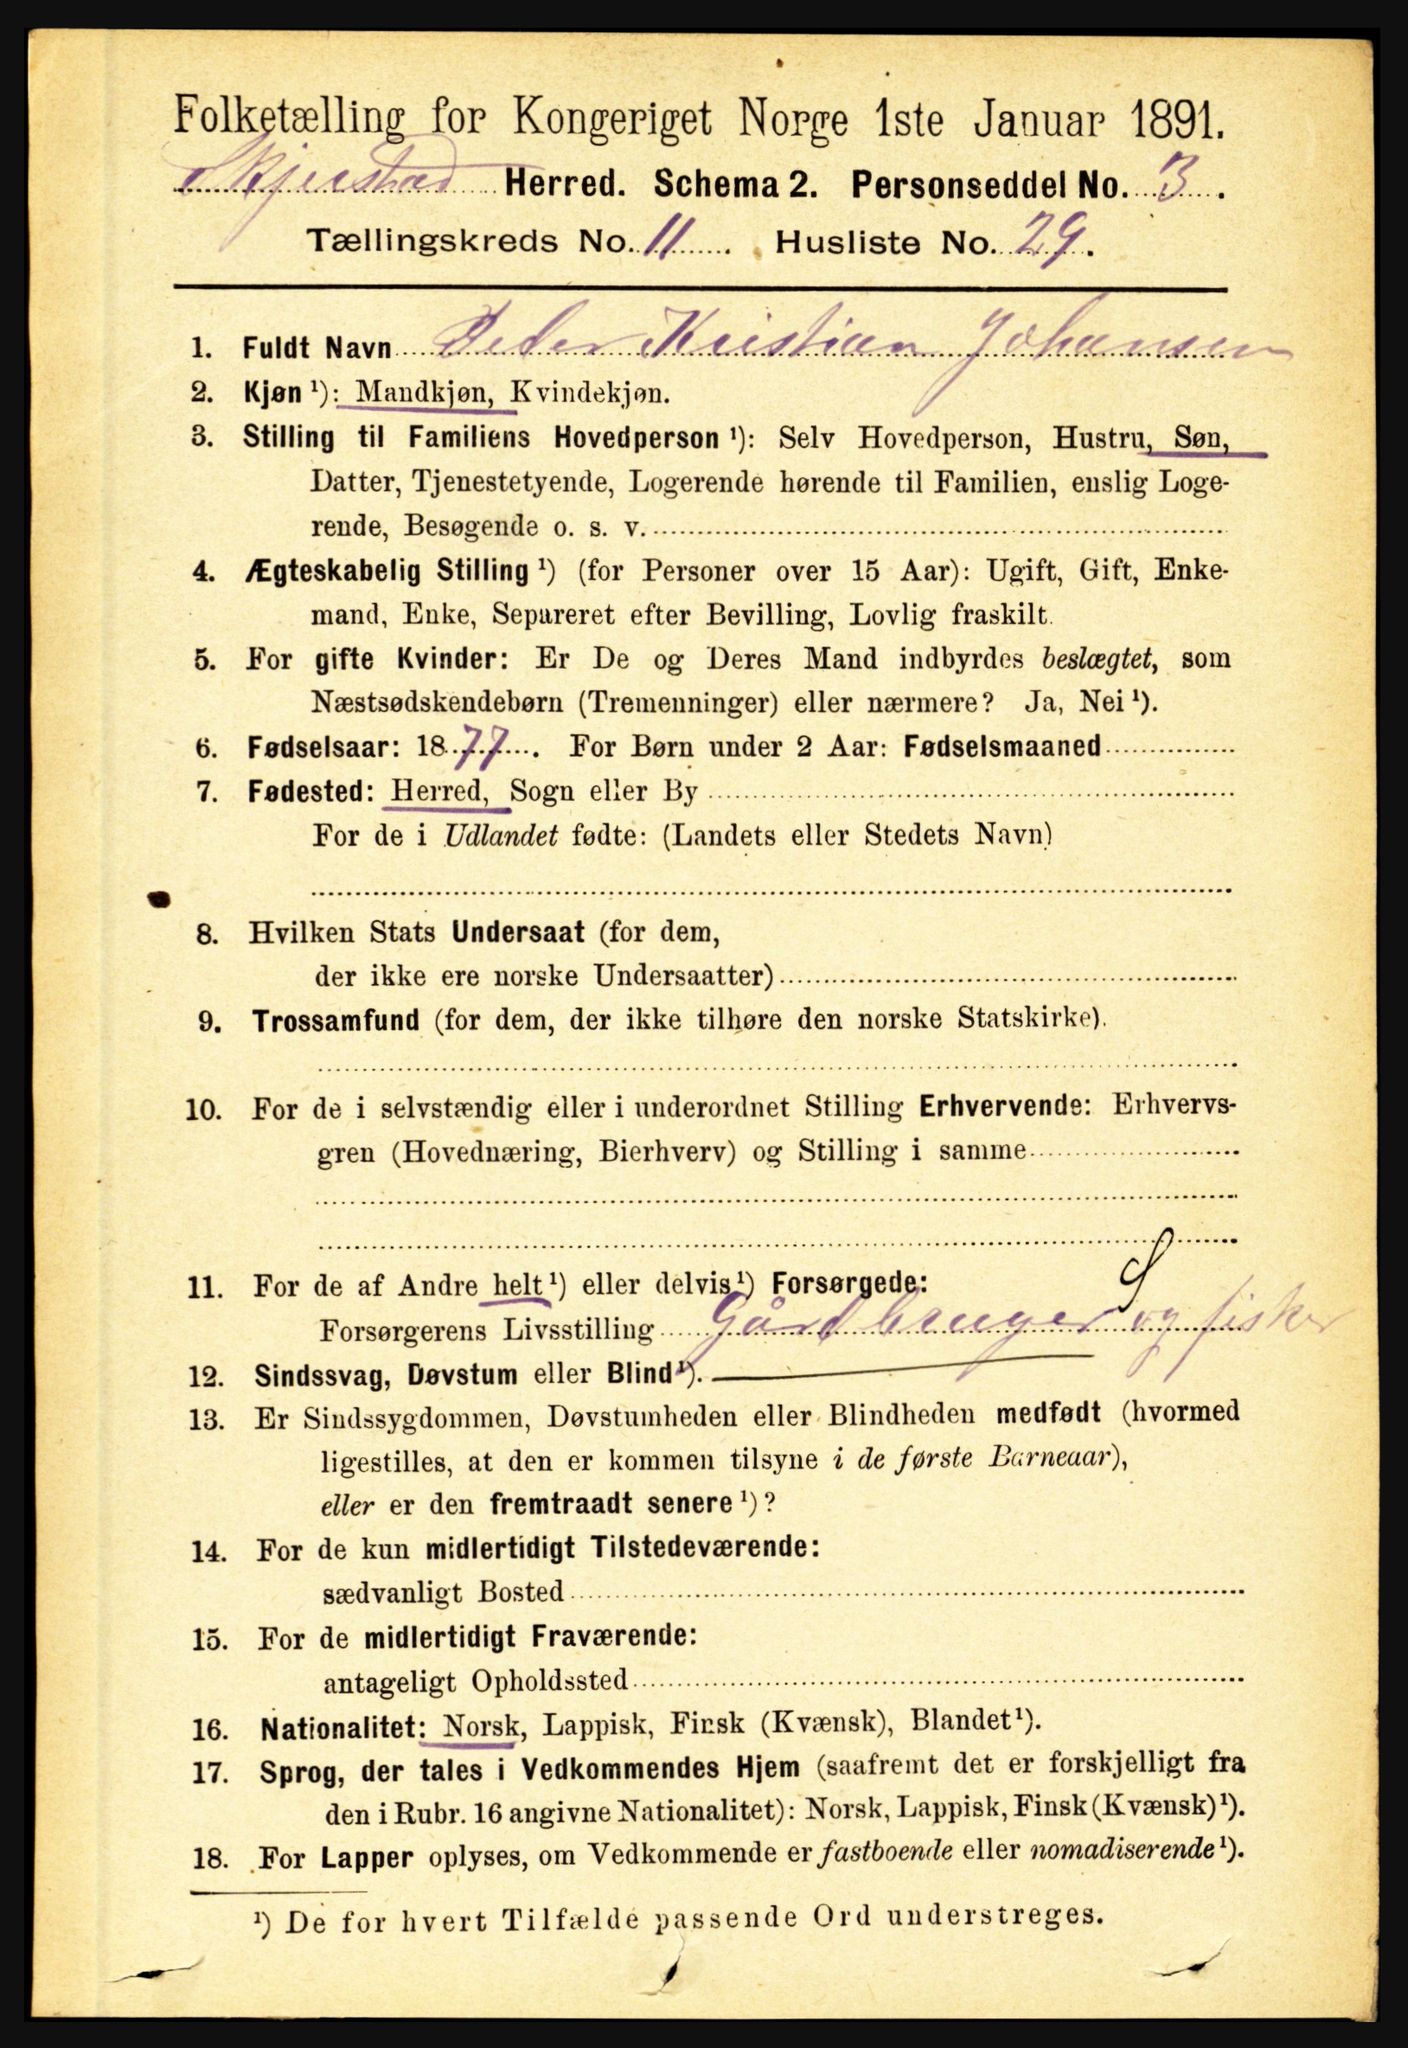 Folketælling for Kongeriget Norge 1ste Januar 1891.
Skjerstad Herred. Schema 2. Personseddel No. 3.
Tællingskreds No. 11. Husliste No. 29.
1. Fuldt Navn Peder Kristian Johansen
2. Kjøn ¹): Mandkjøn, Kvindekjøn.
3. Stilling til Familiens Hovedperson ¹): Selv Hovedperson, Hustru, Søn,
Datter, Tjenestetyende, Logerende hørende til Familien, enslig Loge-
rende, Besøgende o. s. v.
4. Ægteskabelig Stilling ¹) (for Personer over 15 Aar): Ugift, Gift, Enke-
mand, Enke, Separeret efter Bevilling, Lovlig fraskilt.
5. For gifte Kvinder: Er De og Deres Mand indbyrdes beslægtet, som
Næstsødskendebørn (Tremenninger) eller nærmere? Ja, Nei ¹).
6. Fødselsaar: 1877. For Børn under 2 Aar: Fødselsmaaned
7. Fødested: Herred, Sogn eller By
For de i Udlandet fødte: (Landets eller Stedets Navn)
8. Hvilken Stats Undersaat (for dem,
der ikke ere norske Undersaatter)
9. Trossamfund (for dem, der ikke tilhøre den norske Statskirke).
10. For de i selvstændig eller i underordnet Stilling Erhvervende: Erhvervs-
gren (Hovednæring, Bierhverv) og Stilling i samme
S
11. For de af Andre helt ¹) eller delvis ¹) Forsørgede:
Forsørgerens Livsstilling Gårdbruger og fisker
12. Sindssvag, Døvstum eller Blind ¹).
13. Er Sindssygdommen, Døvstumheden eller Blindheden medfødt (hvormed
ligestilles, at den er kommen tilsyne i de første Barneaar),
eller er den fremtraadt senere ¹)?
14. For de kun midlertidigt Tilstedeværende:
sædvanligt Bosted
15. For de midlertidigt Fraværende:
antageligt Opholdssted
16. Nationalitet: Norsk, Lappisk, Finsk (Kvænsk), Blandet ¹).
17. Sprog, der tales i Vedkommendes Hjem (saafremt det er forskjelligt fra
den i Rubr. 16 angivne Nationalitet): Norsk, Lappisk, Finsk (Kvænsk) ¹).
18. For Lapper oplyses, om Vedkommende er fastboende eller nomadiserende ¹).
¹) De for hvert Tilfælde passende Ord understreges.